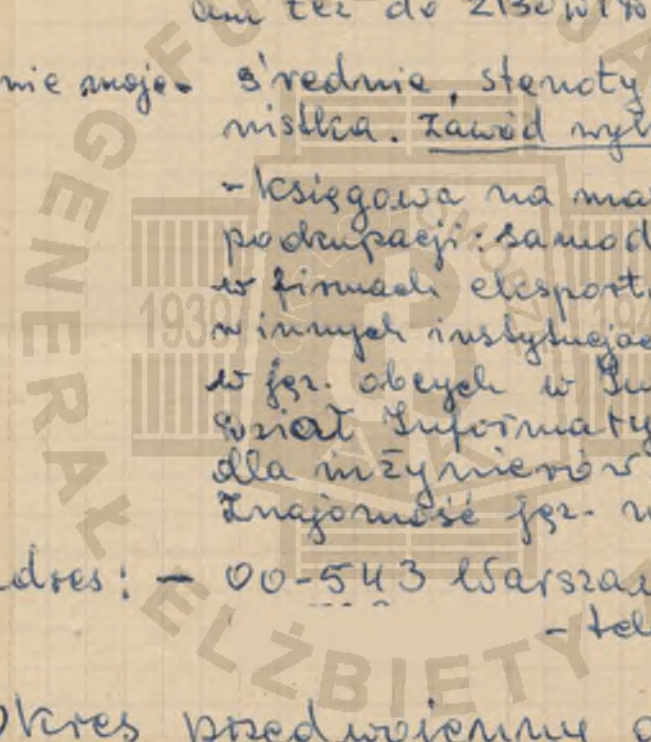 am też do
nie moje. średnie, stenoty
nistka. Zawód wyk
- księgowa na ma
podokupacji: samod
w firmach eksport
w innych instytucjac
w jęz. obcych w In
Dział Informaty
dla inżynierów
Znajomość jęz. n
dres: - 00-543 Warszaw
- tel
Okres przedwojenny
FU
GENERAŁ
ELŻBIETY
1939
AK